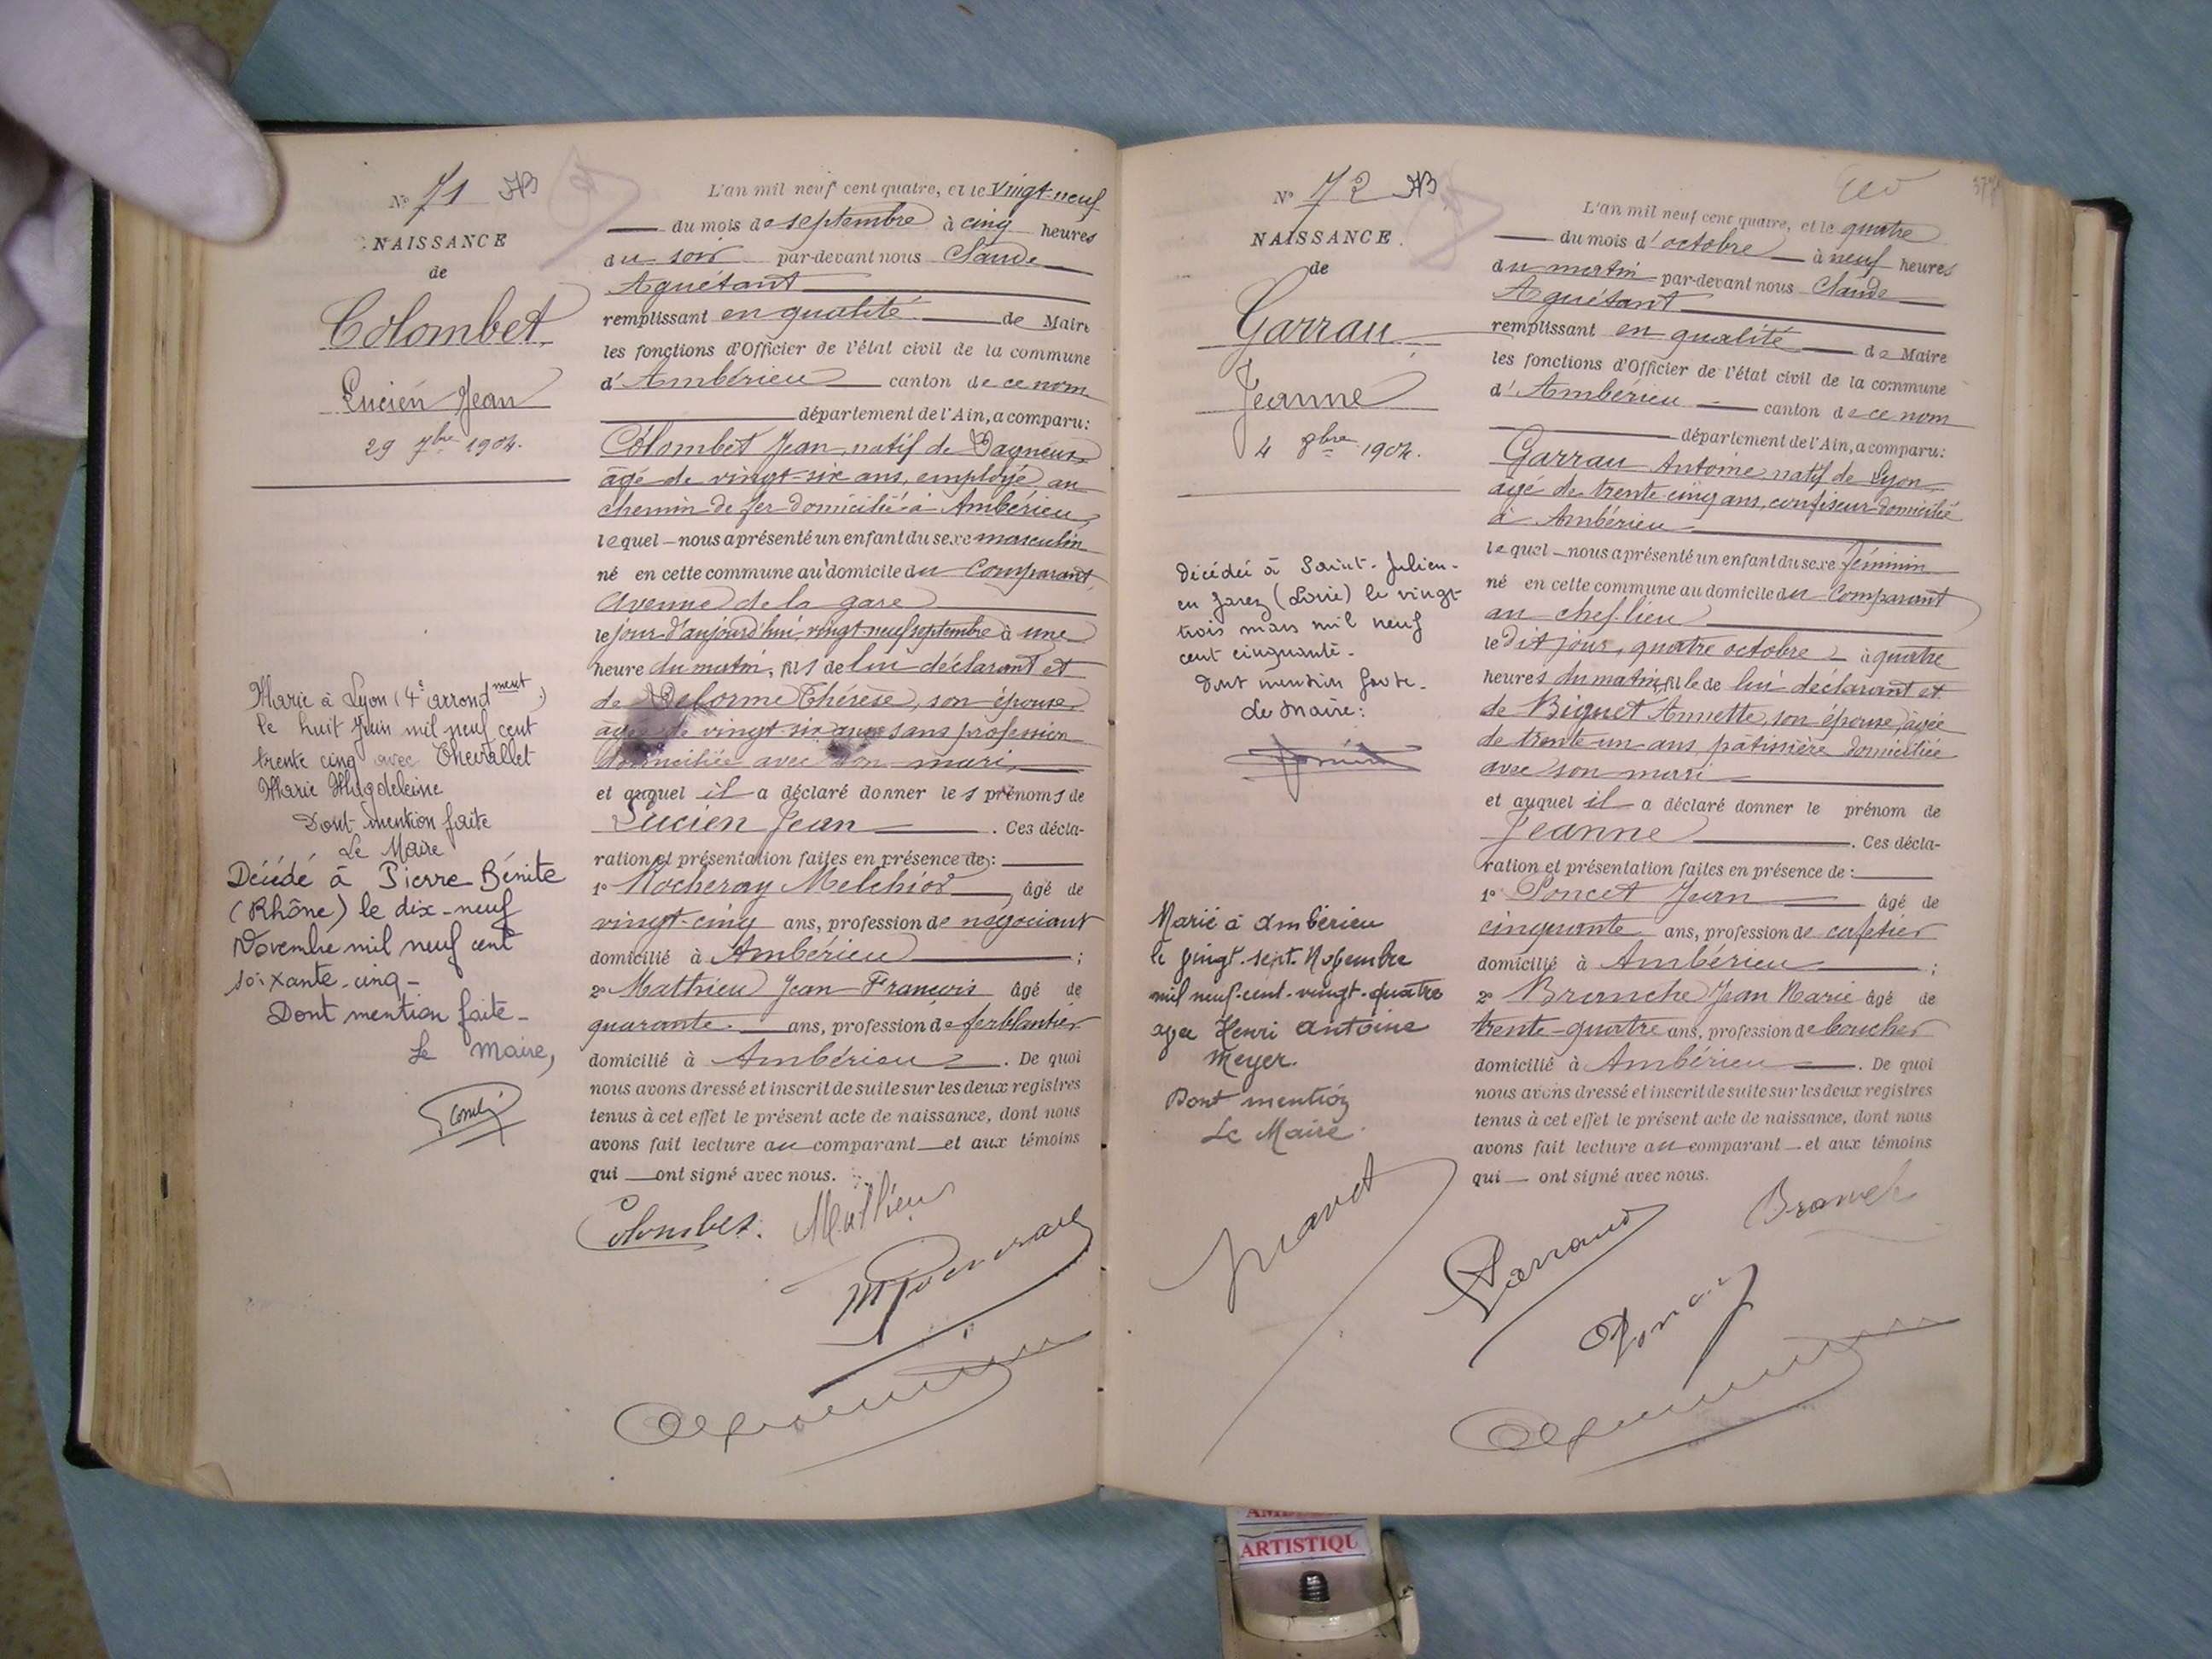 N° 71
NAISSANCE
de
Colombet
Lucien Jean
29 7bre 1904.
Marié à Lyon (4e arrondment)
le huit Juin mil neuf cent
trente cinq avec Chevallet
Marie Magdeleine
Dont mention faite
Le Maire
Décédé à Pierre Bénite
(Rhône) le dix-neuf
Novembre mil neuf cent
soixante-cinq-
Dont mention faite-
Le Maire,
L'an mil neuf cent quatre, et le vingt-neuf
du mois de septembre à cinq heures
du soir par-devant nous Claude
Aguétant
remplissant en qualité de Maire
les fonctions d'Officier de l'état civil de la commune
d'Ambérieu canton de ce nom
département de l'Ain, a comparu:
Colombet Jean, natif de Dagneux
âgé de vingt-six ans, employé au
chemin de fer domicilié à Ambérieu,
lequel nous a présenté un enfant du sexe masculin
né en cette commune au domicile du Comparant
Avenue de la gare
le jour d'aujourd'hui vingt-neuf septembre à une
heure du matin, fils de lui déclarant et
de Delorme Thérèse, son épouse
âgée de vingt-six ans sans profession
domiciliée avec son mari,
et auquel il a déclaré donner les prénoms de
Lucien Jean. Ces décla-
ration et présentation faites en présence de:
1° Rocheray Melchior, âgé de
vingt-cinq ans, profession de négociant
domicilié à Ambérieu;
2° Mathieu Jean François âgé de
quarante ans, profession de ferblantier
domicilié à Ambérieu. De quoi
nous avons dressé et inscrit de suite sur les deux registres
tenus à cet effet le présent acte de naissance, dont nous
avons fait lecture au comparant et aux témoins
qui ont signé avec nous.
Colombet. Mathieu
N° 72
NAISSANCE.
de
Garrau
Jeanne
4 8bre 1904.
Décédée à Saint-Julien-
en Jarez (Loire) le vingt
trois mars mil neuf
cent cinquante-
Dont mention faite-
Le Maire:
Marié à Ambérieu
le vingt-sept-Novembre
mil neuf-cent-vingt-quatre
avec Henri Antoine
Meyer.
Dont mention
Le Maire.
L'an mil neuf cent quatre, et le quatre
du mois d'octobre à neuf heures
du matin par-devant nous Claude
Aguétant
remplissant en qualité de Maire
les fonctions d'Officier de l'état civil de la commune
d'Ambérieu canton de ce nom
département de l'Ain, a comparu:
Garrau Antoine, natif de Lyon,
âgé de trente-cinq ans, confiseur domicilié
à Ambérieu
lequel nous a présenté un enfant du sexe féminin
né en cette commune au domicile du Comparant
au chef-lieu
le dit jour, quatre octobre à quatre
heures du matin, fille de lui déclarant et
de Biguet Annette, son épouse, âgée
de trente-un ans, pâtissière domiciliée
avec son mari
et auquel il a déclaré donner le prénom de
Jeanne. Ces décla-
ration et présentation faites en présence de:
1° Poncet Jean âgé de
cinquante ans, profession de cafetier
domicilié à Ambérieu;
2° Branche Jean Marie âgé de
trente-quatre ans, profession de boucher
domicilié à Ambérieu. De quoi
nous avons dressé et inscrit de suite sur les deux registres
tenus à cet effet le présent acte de naissance, dont nous
avons fait lecture au comparant et aux témoins
qui ont signé avec nous.
ARTISTIQU